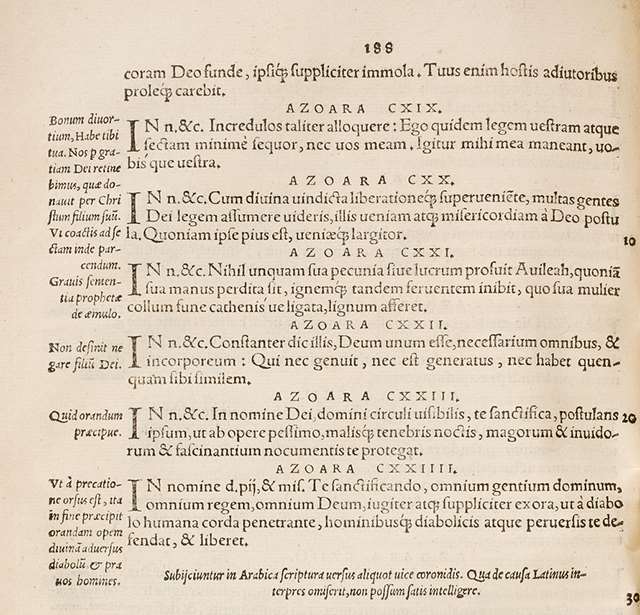 188
coram Deo funde, ipsiq́; suppliciter immola. Tuus enim hostis adiutoribus
proleq́; carebit.
AZOARA CXIX.
Bonum diuor-
tium, Habe tibi
tua. Nos p gra-
tiam Dei retine
bimus, quæ do-
nauit per Chri
stum filium suũ.
IN n.&c. Incredulos taliter alloquere: Ego quidem legem uestram atque
sectam minimè sequor, nec uos meam. Igitur mihi mea maneant, uo-
bis que uestra.
AZOARA CXX.
Vt coactis ad se
ctam inde par-
cendum.
IN n.&c. Cum diuina uindicta liberationeq́; superueniẽte, multas gentes
Dei legem assumere uideris, illis ueniam atq́; misericordiam à Deo postu
la. Quoniam ipse pius est, ueniæq́; largitor.
10
AZOARA CXXI.
Grauis senten-
tia prophetæ
de æmulo.
IN n.&c. Nihil unquam sua pecunia siue lucrum profuit Auileah, quoniã
sua manus perdita sit, ignemq́; tandem feruentem inibit, quo sua mulier
collum fune cathenis ue ligata, lignum afferet.
AZOARA CXXII.
Non desinit ne
gare filiũ Dei.
IN n.&c. Constanter dic illis, Deum unum esse, necessarium omnibus, &
incorporeum: Qui nec genuit, nec est generatus, nec habet quen-
quam sibi similem.
AZOARA CXXIII.
Quid orandum
præcipue.
IN n.&c. In nomine Dei, domini circuli uisibilis, te sanctifica, postulans
ipsum, ut ab opere pessimo, malisq́; tenebris noctis, magorum & inuido-
rum & fascinantium nocumentis te protegat.
20
AZOARA CXXIIII.
Vt à precatio-
ne orsus est, ita
in fine præcipit
orandam opem
diuinã aduersus
diabolũ & pra
uos homines.
IN nomine d. pij, & mis. Te sanctificando, omnium gentium dominum,
omnium regem, omnium Deum, iugiter atq́; suppliciter exora, ut à diabo
lo humana corda penetrante, hominibusq́; diabolicis atque peruersis te de-
fendat, & liberet.
Subijciuntur in Arabica scriptura uersus aliquot uice coronidis. Qua de causa Latinus in-
terpres omiserit, non possum satis intelligere.
30